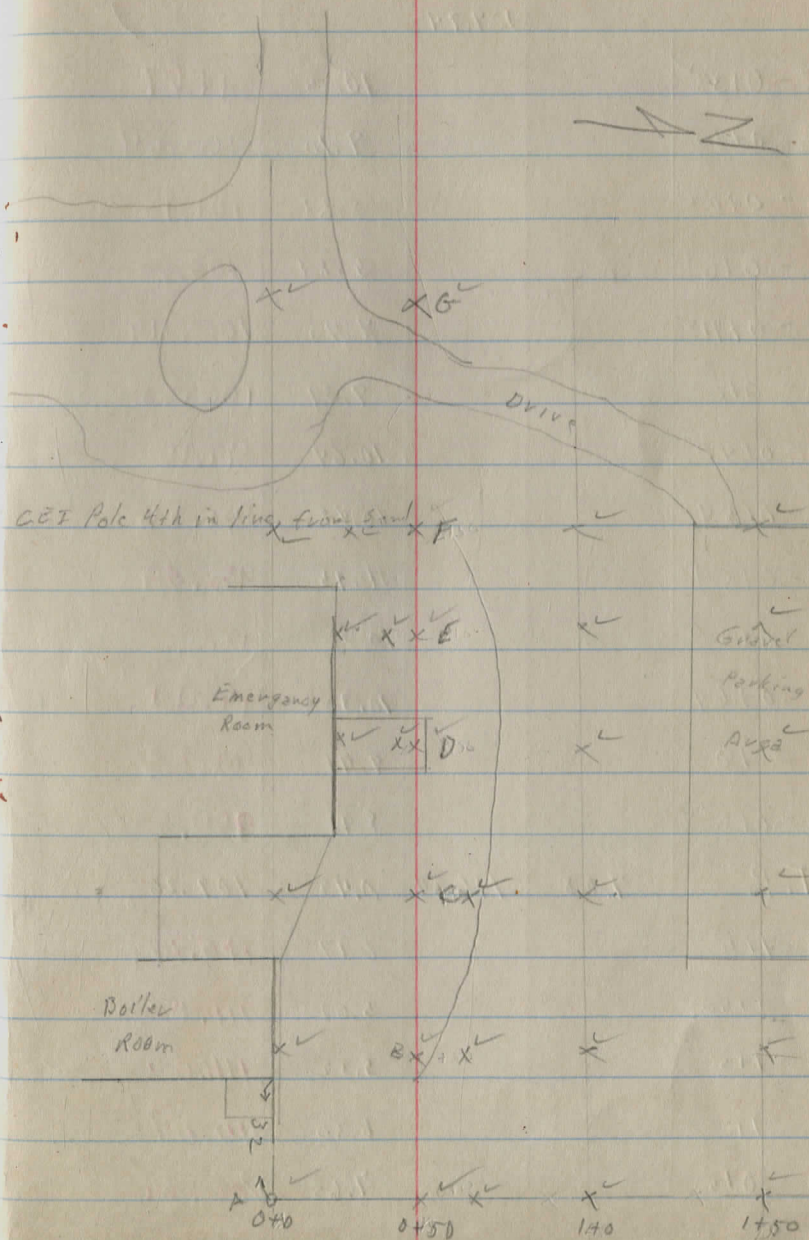 N
G
Drive
CEI Pole 4th in line from
F
E
Gravel
Parking
Area
Emergancy
Room
D
C
Boiler
Room
B
32
A
0+0
0+50
1+0
1+50